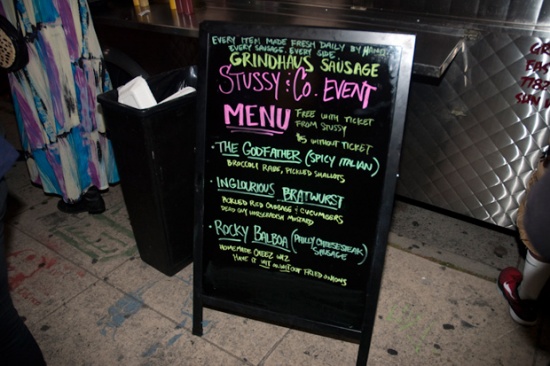 EVERY ITEM MADE FRESH DAILY BY HAND!
EVERY SAUSAGE. EVERY SIDE.
GRINDHAUS SAUSAGE
STUSSY & CO. EVENT
MENU
FREE WITH TICKET
FROM STUSSY
$5 WITHOUT TICKET
• THE GODFATHER (SPICY ITALIAN)
BROCCOLI RABE, PICKLED SHALLOTS
• INGLOURIOUS BRATWURST
PICKLED RED CABBAGE & CUCUMBERS
DEAD GUY HORSERADISH MUSTARD
• ROCKY BALBOA (PHILLY CHEESESTEAK
SAUSAGE)
HOMEMADE CHEEZ WIZ
HAVE IT WIT OR WITOUT FRIED ONIONS
GR
EAS
SUN